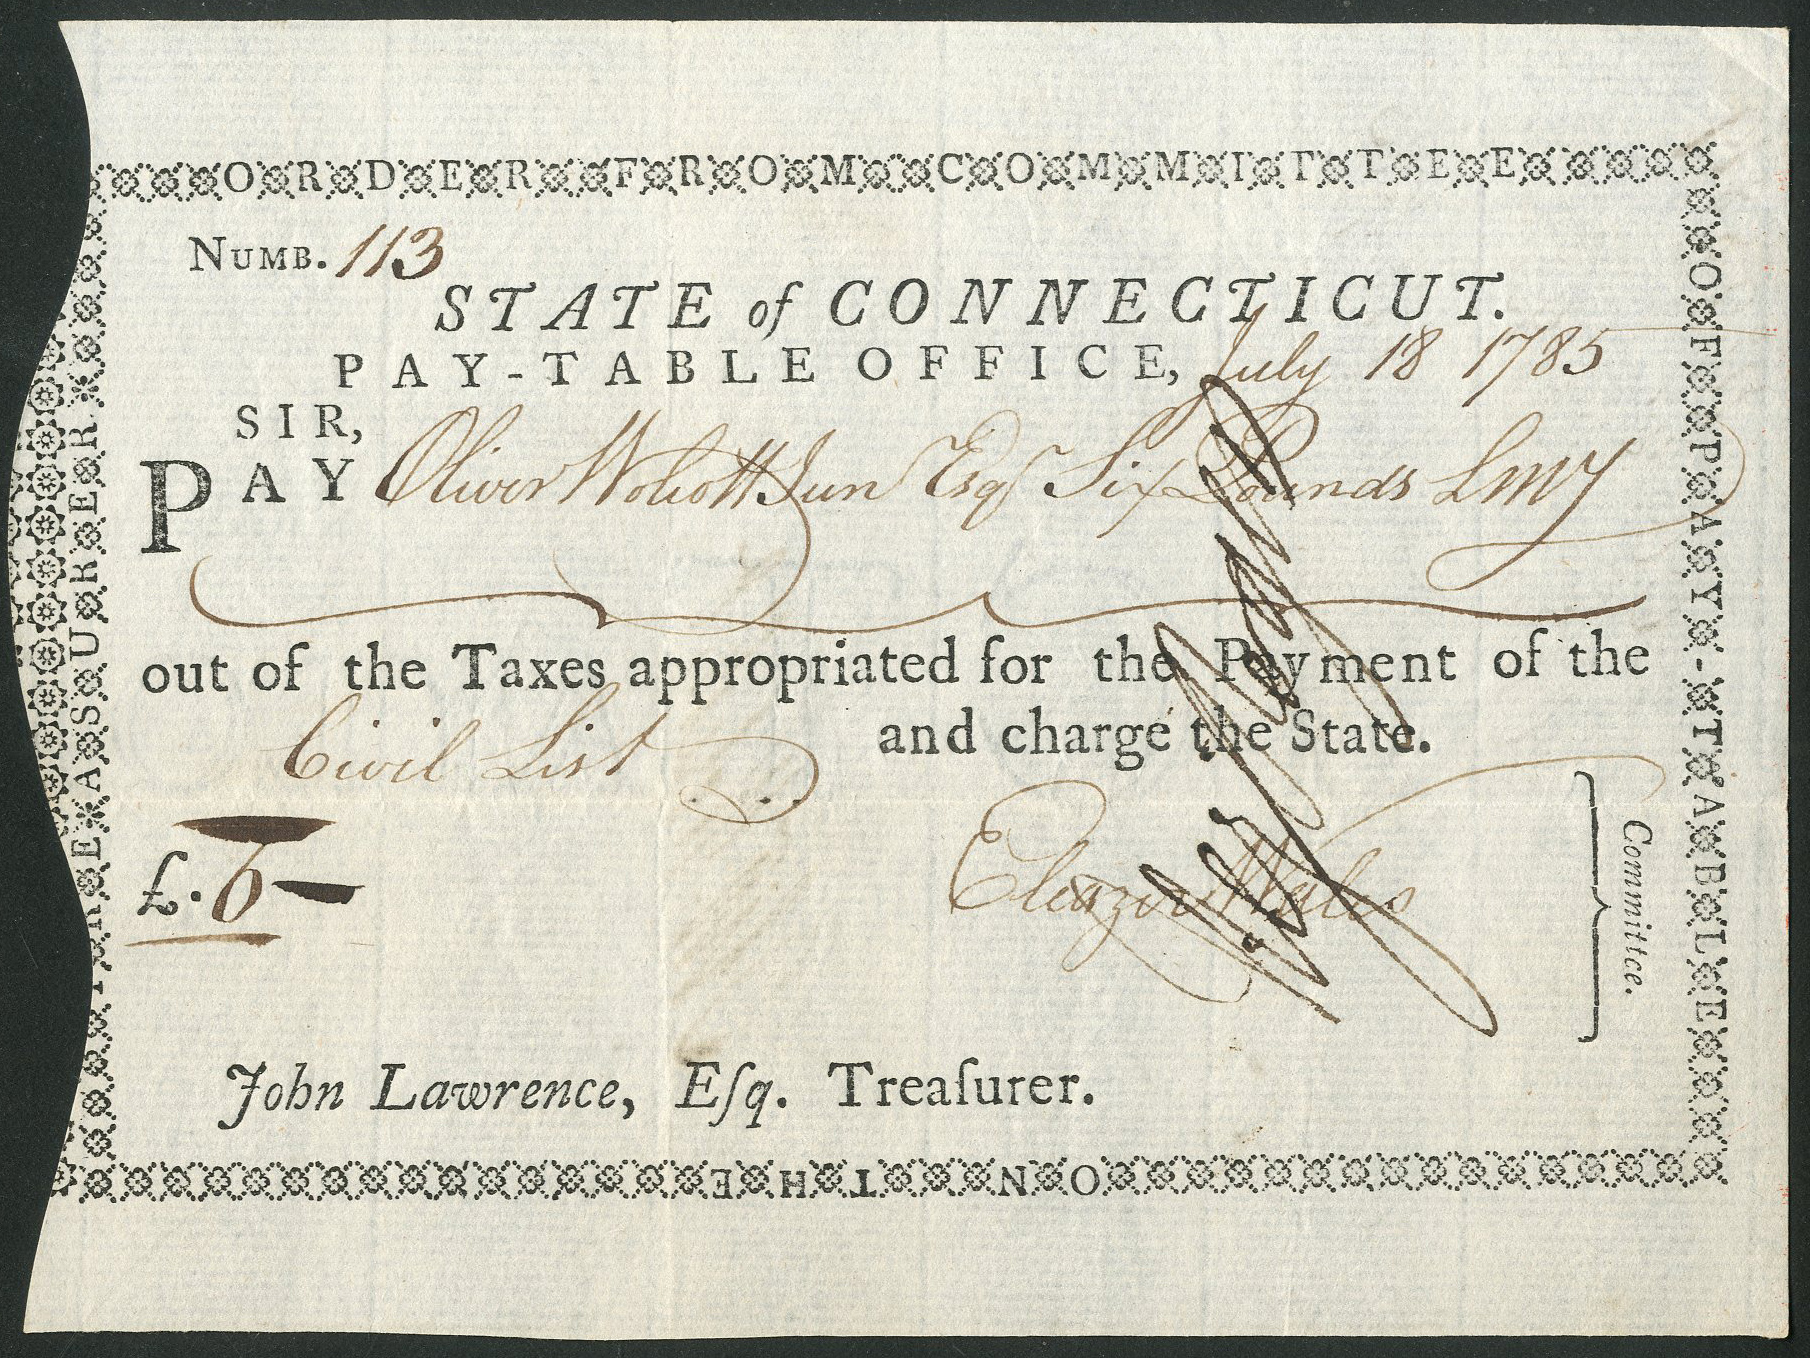 ORDER FROM COMMITTEE
OF PAY-TABLE
ON THE
TREASURER
NUMB. 113
STATE of CONNECTICUT.
PAY-TABLE OFFICE, July 18 1785
SIR,
PAY Oliver Wolcott Jun Esqr Six Pounds LMy
out of the Taxes appropriated for the Payment of the
Civil List and charge the State.
£. 6 —
Eleazer Wales
Committee.
John Lawrence, Eſq. Treaſurer.